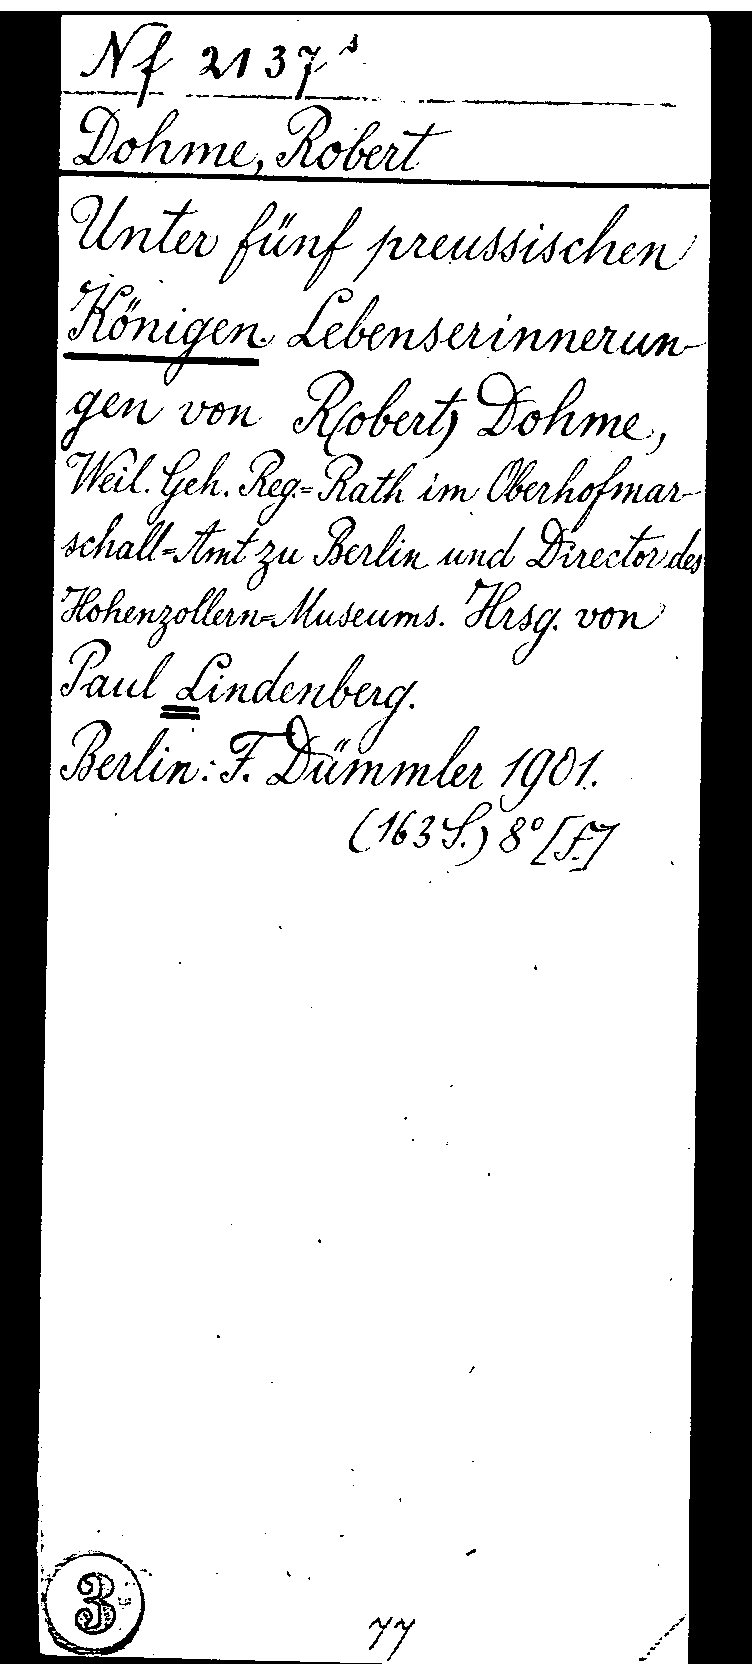 Nf 2137ˢ
Dohme, Robert
Unter fünf preussischen
Königen. Lebenserinnerun-
gen von R(obert) Dohme,
Weil. Geh. Reg.=Rath im Oberhofmar-
schall=Amt zu Berlin und Director des
Hohenzollern=Museums. Hrsg. von
Paul Lindenberg.
Berlin: F. Dümmler 1901.
(163 S.) 8° [f.]
3
77